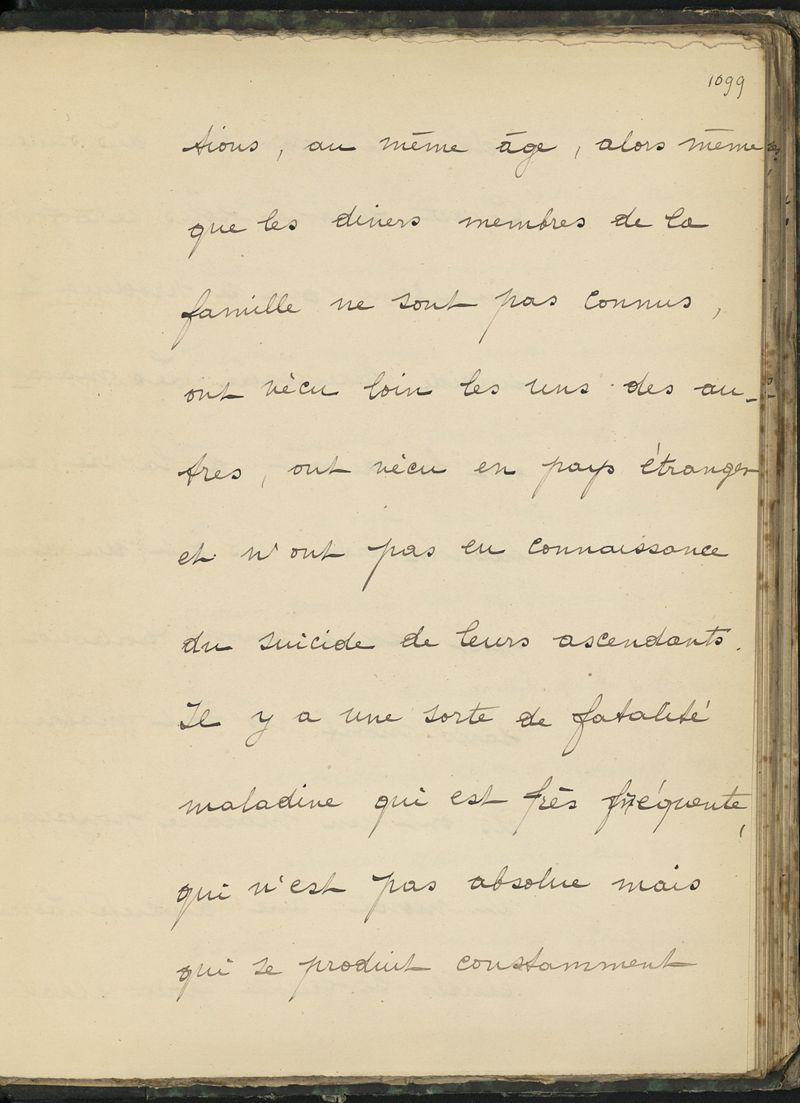 1099
tions, au même âge, alors même
que les divers membres de la
famille ne sont pas connus,
ont vécu loin les uns des au-
tres, ont vécu en pays étranger
et n'ont pas eu connaissance
du suicide de leurs ascendants.
Il y a une sorte de fatalité
maladive qui est très fréquente,
qui n'est pas absolue mais
qui se produit constamment